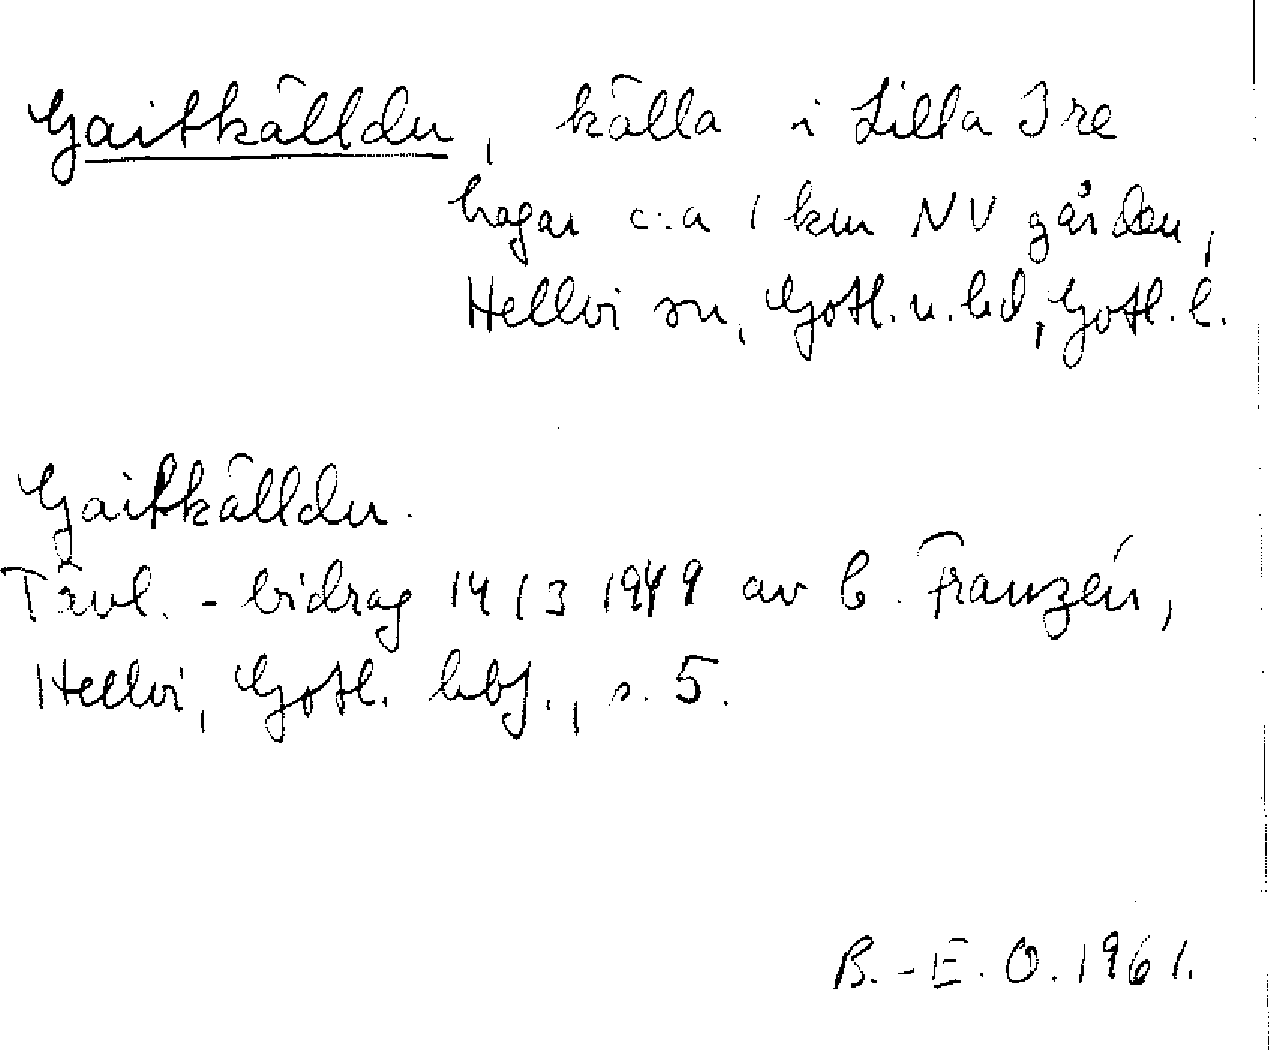 Gaitkälldu, källa i Lilla Ire
hagar c:a 1 km NV gården,
Hellvi sn, Gotl. n. hd, Gotl. l.
Gaitkälldu.
Tävl.-bidrag 14/3 1949 av C. Franzén,
Hellvi, Gotl. hbf., s. 5.
B.-E. O. 1961.